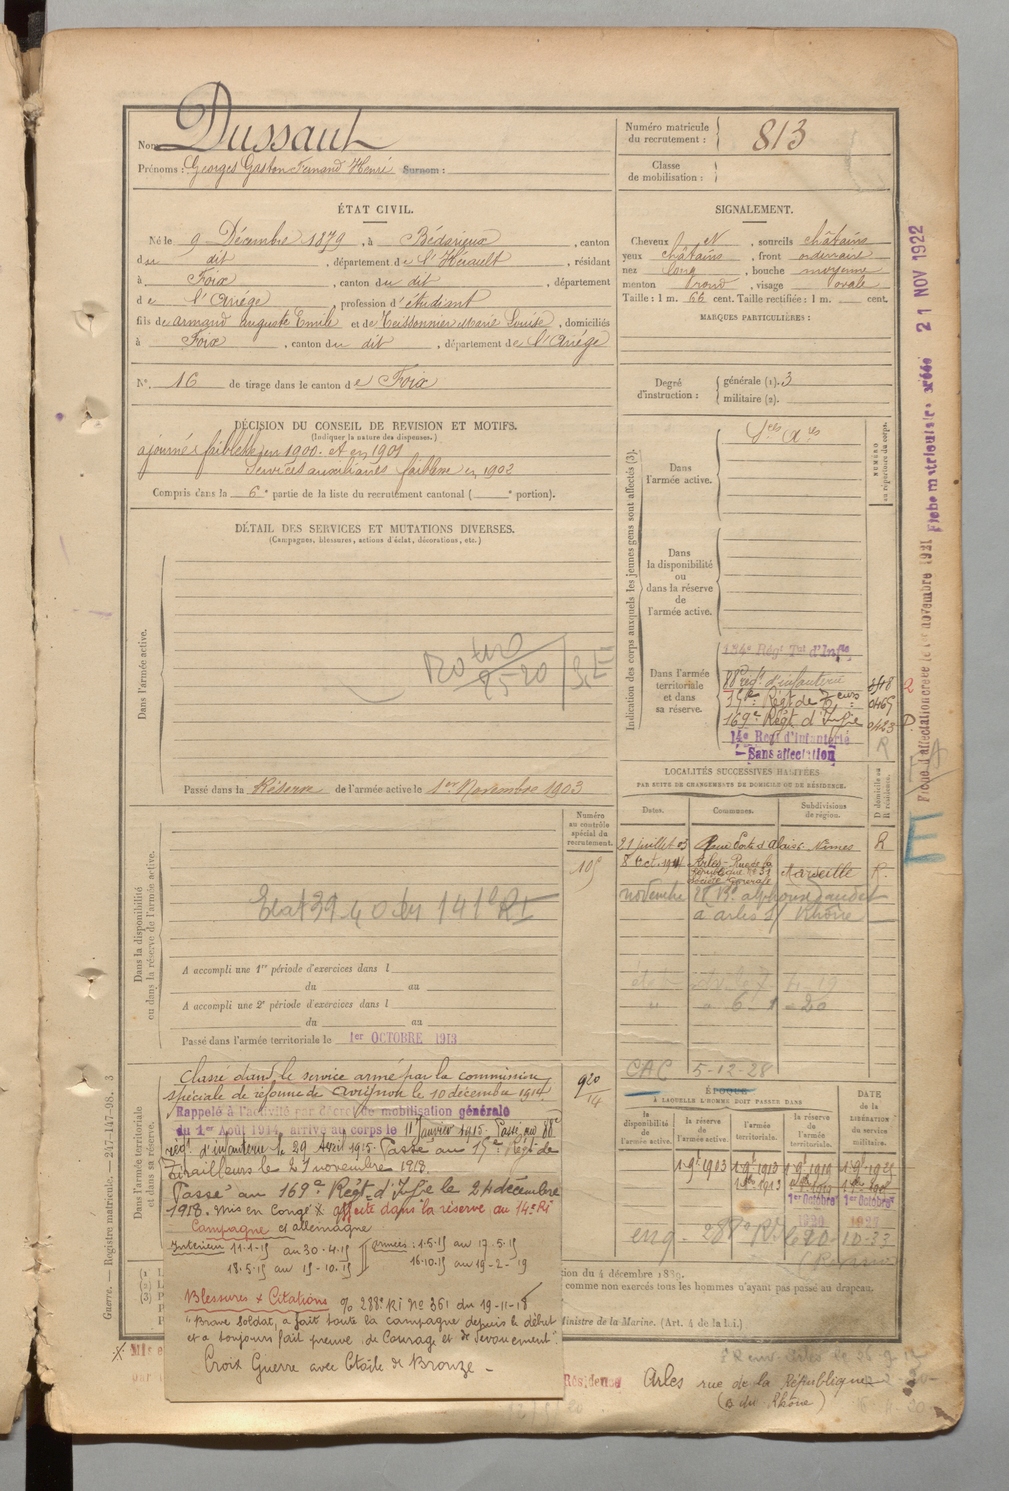 Nom Dussaut
Prénoms : Georges Gaston Fernand Henri Surnom :
Numéro matricule
du recrutement : 813
Classe
de mobilisation :
ÉTAT CIVIL.
Né le 9 Décembre 1879, à Bédarieux, canton
du dit, département de l'Hérault, résidant
à Foix, canton du dit, département
de l'Ariége, profession d'étudiant
fils de Armand Auguste Emile et de Teissonnier Marie Louise, domiciliés
à Foix, canton du dit, département de l'Ariége
N° 16 de tirage dans le canton de Foix
SIGNALEMENT.
Cheveux et, sourcils châtains
yeux châtains, front ordinaire
nez long, bouche moyenne
menton rond, visage ovale
Taille : 1 m. 66 cent. Taille rectifiée : 1 m. cent.
MARQUES PARTICULIÈRES :
Degré
d'instruction :
générale (1). 3
militaire (2).
DÉCISION DU CONSEIL DE REVISION ET MOTIFS.
(Indiquer la nature des dispenses.)
ajourné faiblesse en 1900. et en 1901
Services auxiliaires faiblesse en 1902
Compris dans la 6e partie de la liste du recrutement cantonal ( e portion).
DÉTAIL DES SERVICES ET MUTATIONS DIVERSES.
(Campagnes, blessures, actions d'éclat, décorations, etc.)
Dans l'armée active.
Passé dans la Réserve de l'armée active le 1er Novembre 1903
Indication des corps auxquels les jeunes gens sont affectés (3).
NUMÉRO
au répertoire du corps.
Dans
l'armée active.
Dans
la disponibilité
ou
dans la réserve
de
l'armée active.
Dans l'armée
territoriale
et dans
sa réserve.
134e Régt Tal d'Infie
88e régt d'infanterie
15e Régt de
169e Régt d'Infie
14e Regt d'Infanterie
Sans affectation
LOCALITÉS SUCCESSIVES HABITÉES
PAR SUITE DE CHANGEMENTS DE DOMICILE OU DE RÉSIDENCE.
Dates.
Communes.
Subdivisions
de région.
D domicile ou
R résidence.
21 juillet 03 Nîmes R
8 oct. 1911 Arles - Rue de la
République n° 31
Société Générale Marseille R.
novembre 13e alphonse daudet
à arles s/ Rhône
6 - 1 - 20
CAC 5-12-28
Numéro
au contrôle
spécial du
recrutement.
105
Dans la disponibilité
ou dans la réserve de l'armée active.
Etat 39 40 du 141e RI
A accompli une 1re période d'exercices dans l
du au
A accompli une 2e période d'exercices dans l
du au
Passé dans l'armée territoriale le 1er OCTOBRE 1913
Dans l'armée territoriale
et dans sa réserve.
Classé dans le service armé par la commission
spéciale de réforme de Avignon le 10 décembre 1914
920/14
Rappelé à l'activité par décret de mobilisation générale
du 1er Août 1914, arrivé au corps le 11 Janvier 1915. Passé au 88e
régt d'infanterie le 29 Avril 1915. Passé au 15e Régt de
Tirailleurs le 21 novembre 1918.
Passé au 169e Régt d'Infie le 24 décembre
1918. Mis en congé affecté dans la réserve au 14e RI
Campagne ct allemagne
Intérieur 11-1-15 au 30-4-15
18.5.15 au 15-10-15
armées : 1.5.15 au 17.5.15
16.10.15 au 19-2-19
Blessures & Citations % 288e RI N° 361 du 19-11-18
"Brave soldat, a fait toute la campagne depuis le début
et a toujours fait preuve de Courage et de dévouement".
Croix Guerre avec Etoile de Bronze -
ÉPOQUE
À LAQUELLE L'HOMME DOIT PASSER DANS
la
disponibilité
de
l'armée active.
la réserve
de
l'armée active.
l'armée
territoriale.
la réserve
de
l'armée
territoriale.
DATE
de la
LIBÉRATION
du service
militaire.
1 9e 1903
1er Octobre
1er Octobre
tion du 4 décembre 1889.
comme non exercés tous les hommes n'ayant pas passé au drapeau.
Ministre de la Marine. (Art. 4 de la loi.)
Résidence Arles rue de la République
(B. du Rhône)
Guerre. — Registre matricule. — 217-147-98. 3
Fiche matriculaire créée 21 NOV 1922
Fiche d'affectation créée le novembre 1921
E